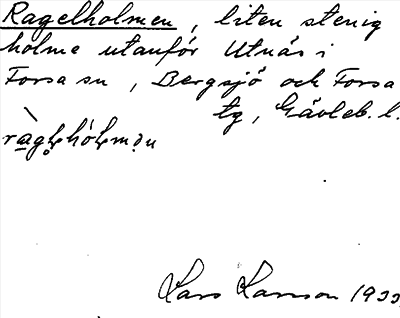 Ragelholmen, liten stenig
holme utanför Utnäs i
Forsa sn, Bergsjö och Forsa
tg, Gävleb. l.
Lars Larsson 1933